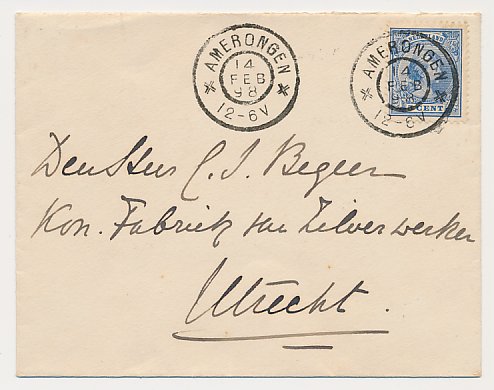 AMERONGEN
14
FEB
98
12-6V
NEDERLAND
AMERONGEN
14
FEB
98
12-6V
CENT
Den Heer C. J. Begeer
Kon. Fabriek van Zilverwerken
Utrecht.